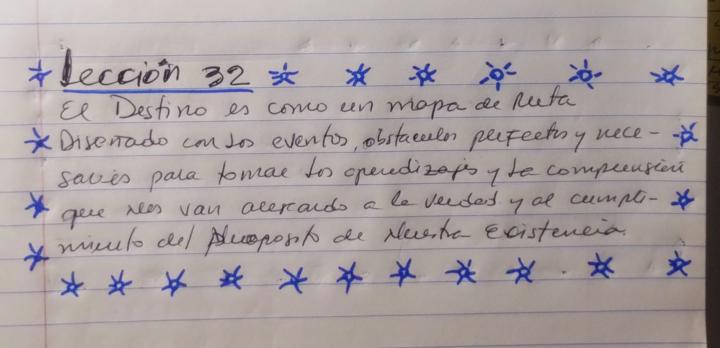 Lección 32
El Destino es como un mapa de Ruta
Diseñado con los eventos, obstaculos perfectos y nece-
sarios para tomar los aprendizajes y la comprensión
que nos van acercando a la verdad y al cumpli-
miento del Proposito de Nuestra Existencia.